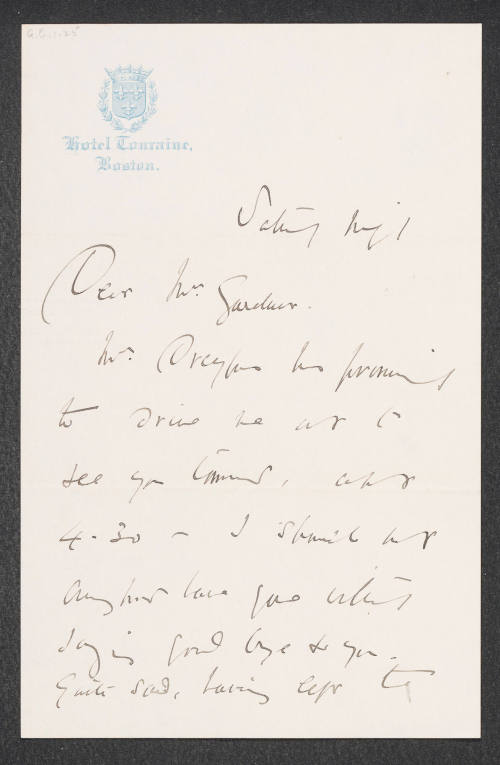 Hotel Touraine,
Boston.
Saturday night
Dear Mrs. Gardner.
Mr. Dreyfus has promised
to drive me out to
see you tomorrow, about
4-30 – I should not
anyhow have gone without
saying good bye to you.
Quite sad, having left the